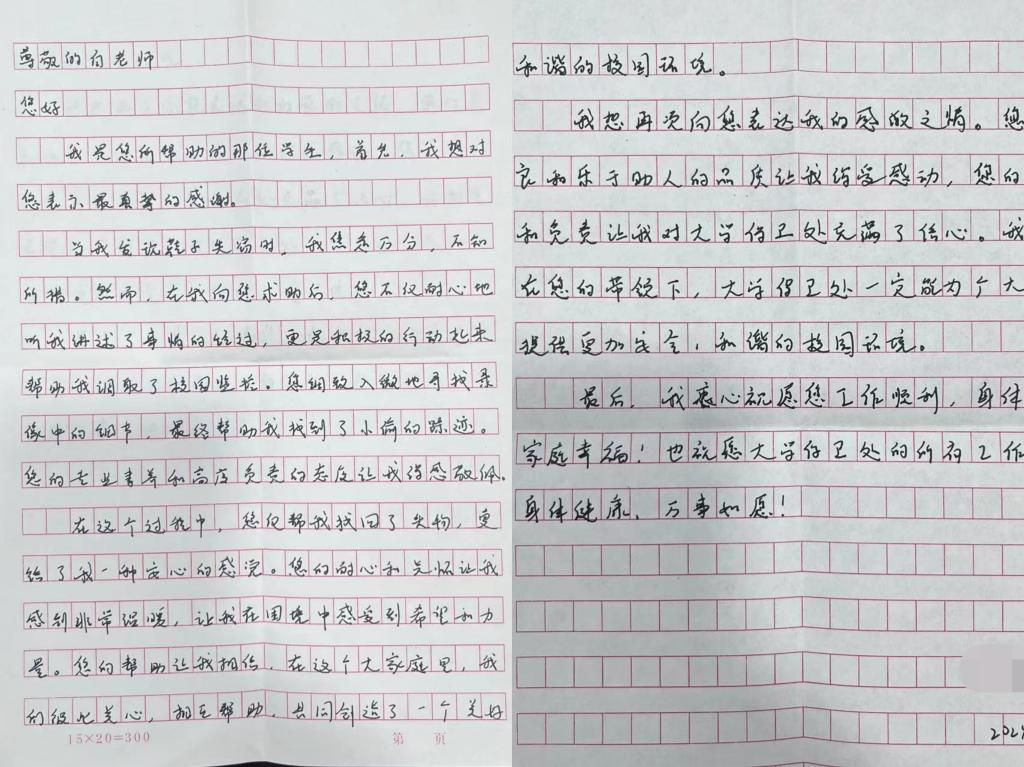 尊敬的白老师
您好
我是您所帮助的那位学生，首先，我想对
您表示最真挚的感谢。
当我发现鞋子失窃时，我焦急万分，不知
所措。然而，在我向您求助后，您不仅耐心地
听我讲述了事情的经过，更是积极的行动起来
帮助我调取了校园监控。您细致入微地寻找录
像中的细节，最终帮助我找到了小偷的踪迹。
您的专业素养和高度负责的态度让我倍感敬佩。
在这个过程中，您仅帮我找回了失物，更
给了我一种安心的感觉。您的耐心和关怀让我
感到非常温暖，让我在困境中感受到希望和力
量。您的帮助让我相信，在这个大家庭里，我
们彼此关心，相互帮助，共同创造了一个美好
15×20=300 第 页
和谐的校园环境。
我想再次向您表达我的感激之情。您
良和乐于助人的品质让我倍受感动，您的
和负责让我对大学保卫处充满了信心。我
在您的带领下，大学保卫处一定能为个大
提供更加安全，和谐的校园环境。
最后，我衷心祝愿您工作顺利，身体
家庭幸福！也祝愿大学保卫处的所有工作
身体健康，万事如愿！
2024